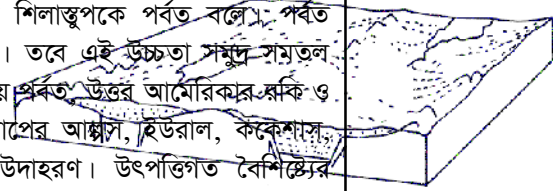 শিলাস্তুপকে পর্বত বলে। পর্বত
। তবে এই উচ্চতা সমুদ্র সমতল
পর্বত, উত্তর আমেরিকার রকি ও
আল্পস, ইউরাল, ককেশাস,
উদাহরণ। উৎপত্তিগত বৈশিষ্ট্যের